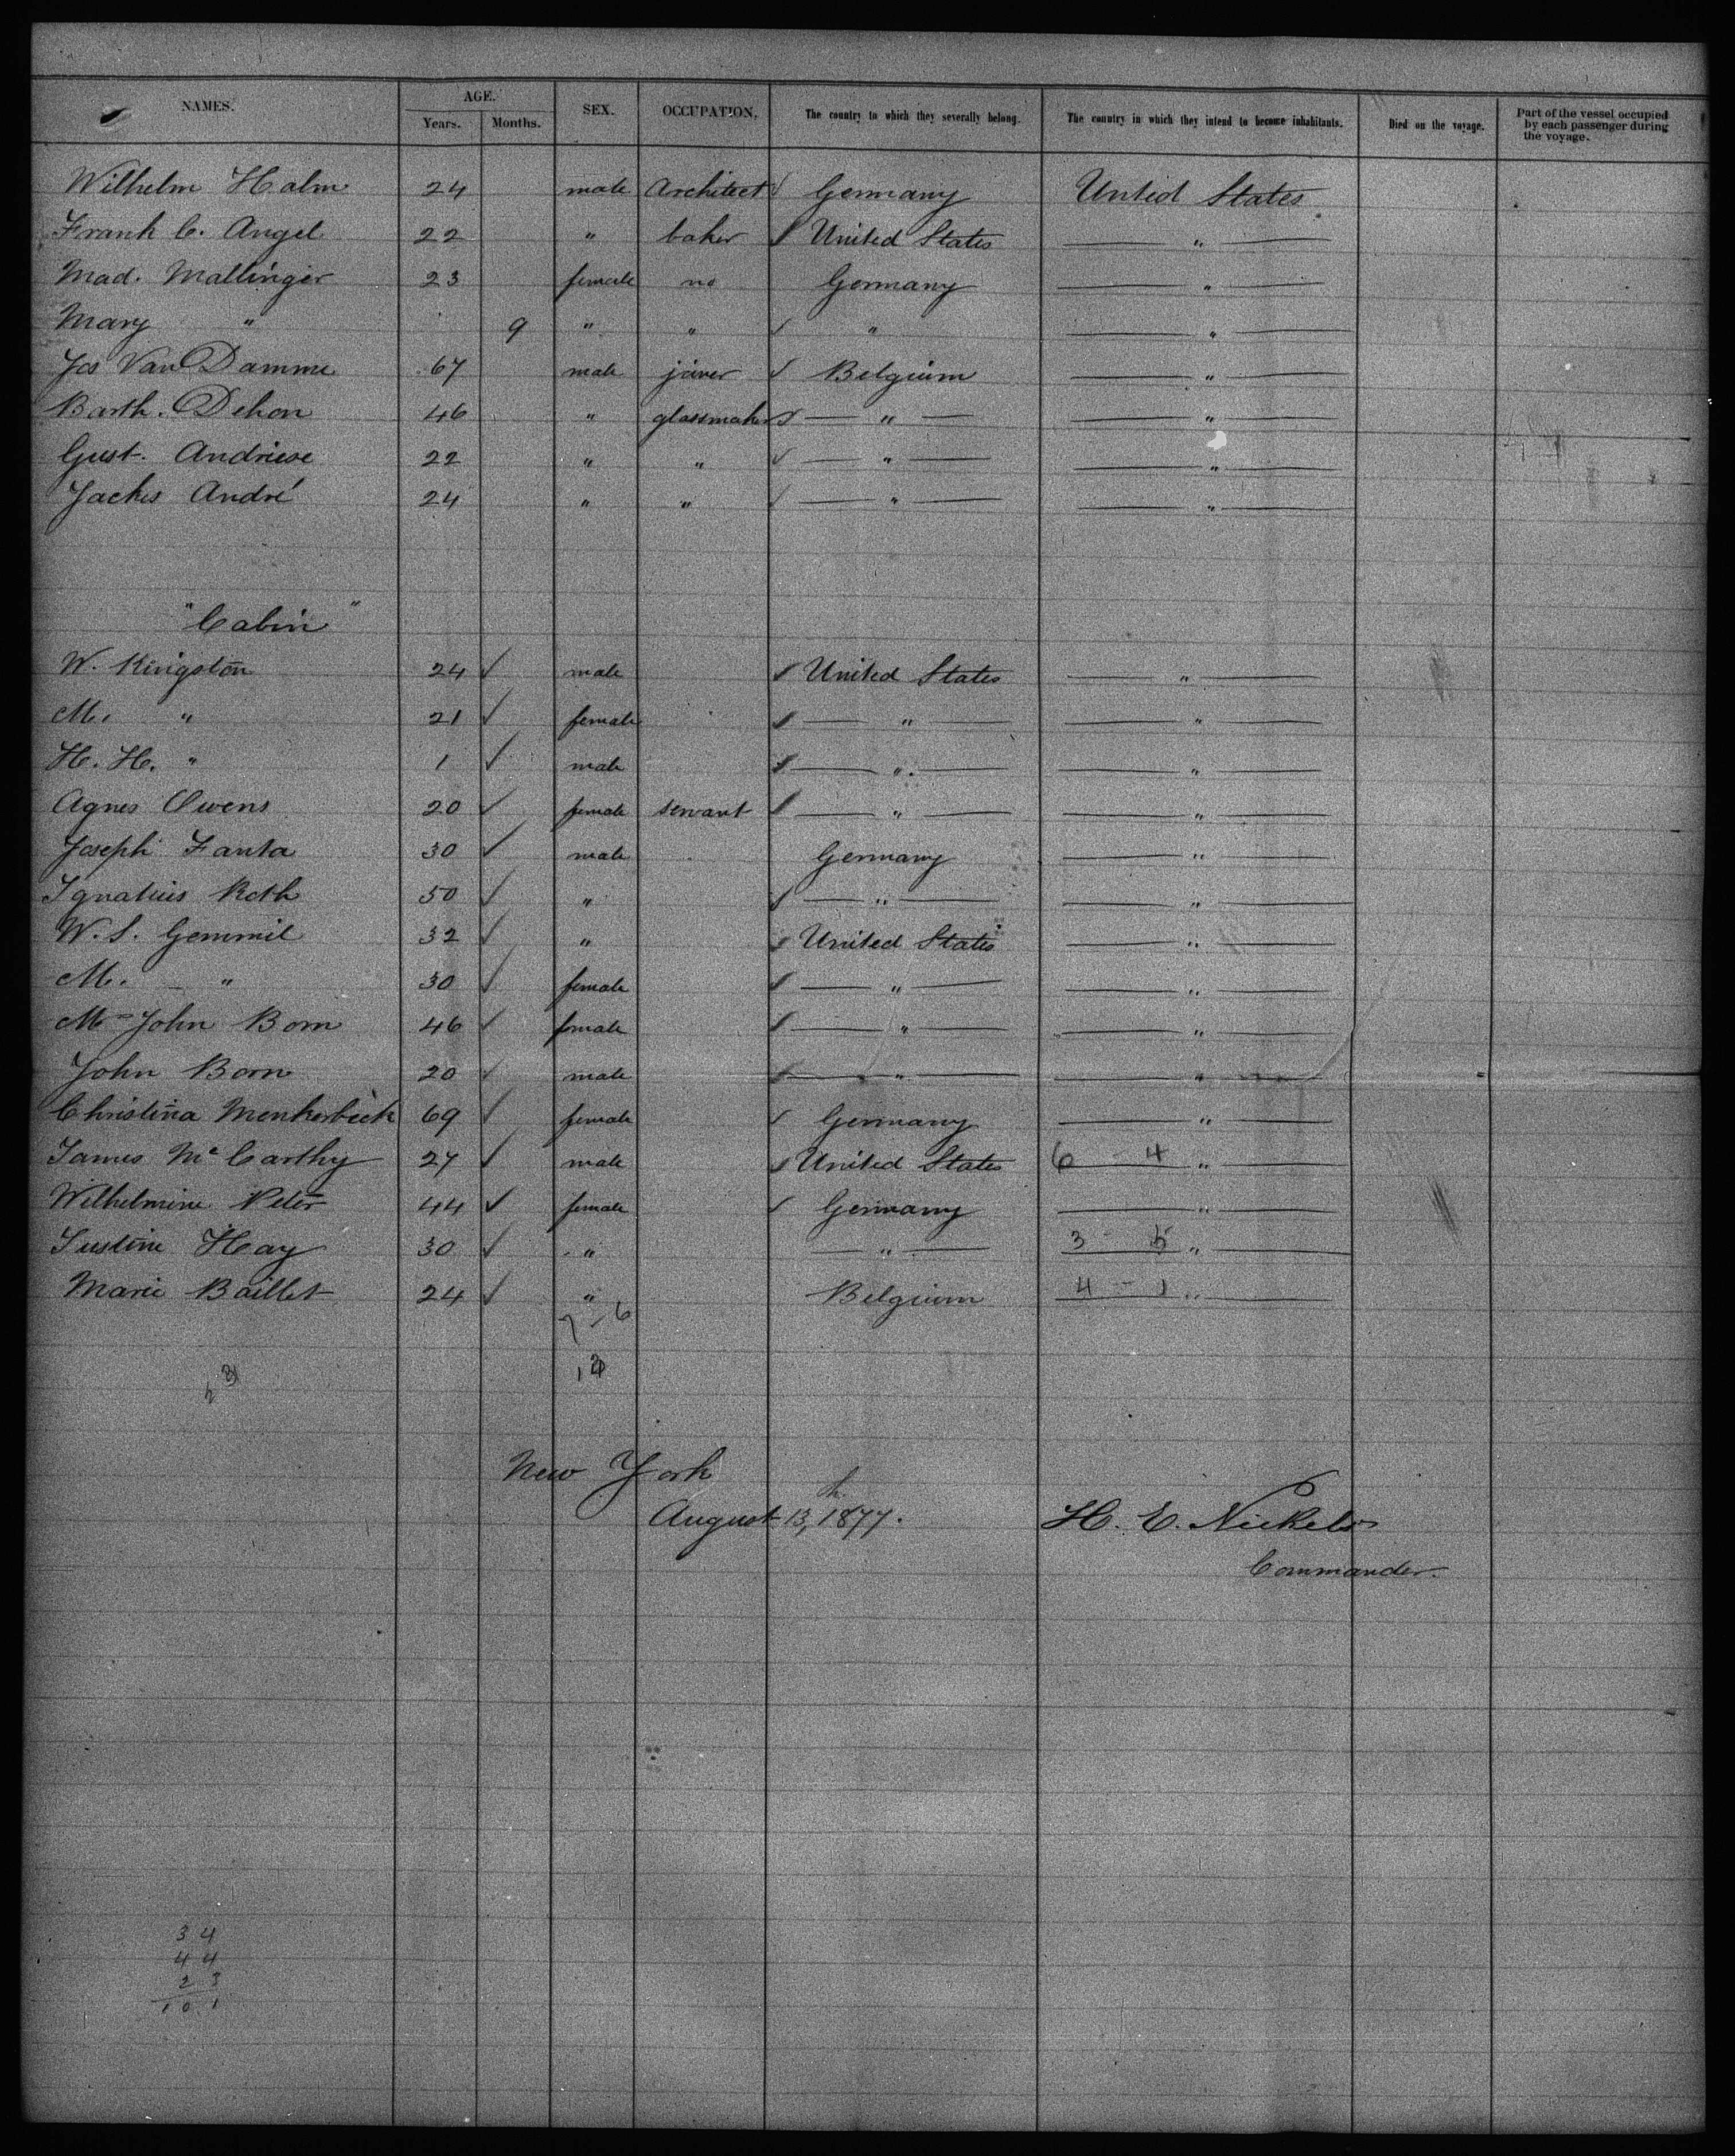 NAMES. AGE. SEX. OCCUPATION. The country to which they severally belong. The country in which they intend to become inhabitants. Died on the voyage. Part of the vessel occupied by each passenger during the voyage.
Years. Months.
Wilhelm Halm 24 male Architect Germany Untied States
Frank C. Angel 22 " baker United States "
Mad. Mallinger 23 female no Germany "
Mary " 9 " " " "
Jos Van Damme 67 male joiner Belgium "
Barth. Dehon 46 " glassmaker " "
Gust. Andriese 22 " " " "
Jackes André 24 " " " "
"Cabin"
W. Kingston 24 male United States "
M. " 21 female " "
H. H. " 1 male " "
Agnes Owens 20 female servant " "
Joseph Fanta 30 male Germany "
Ignatius Roth 50 " " "
W. S. Gemmil 32 " United States "
M. " 30 female " "
Mrs John Born 46 female " "
John Born 20 male " "
Christina Menkerbeck 69 female Germany "
James McCarthy 27 male United States 6 - 4 "
Wilhelmine Peter 44 female Germany "
Justine Hay 30 " " 3 - 5 "
Marie Baillet 24 " Belgium 4 - 1 "
7 - 6
New York
August 13th, 1877. H. E. Nickels
Commander.
34
44
23
101